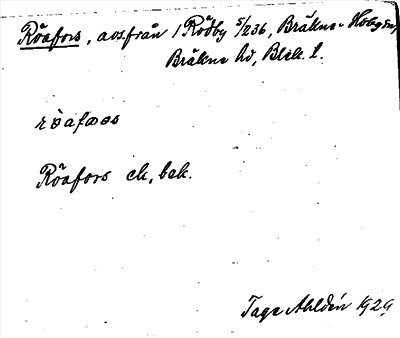 Röafors, avs. från 1 Rödby 5/236, Bräkne-Hoby sn,
Bräkne hd, Blek. l.
röafωs
Röafors ek, bek.
Tage Ahldén 1929